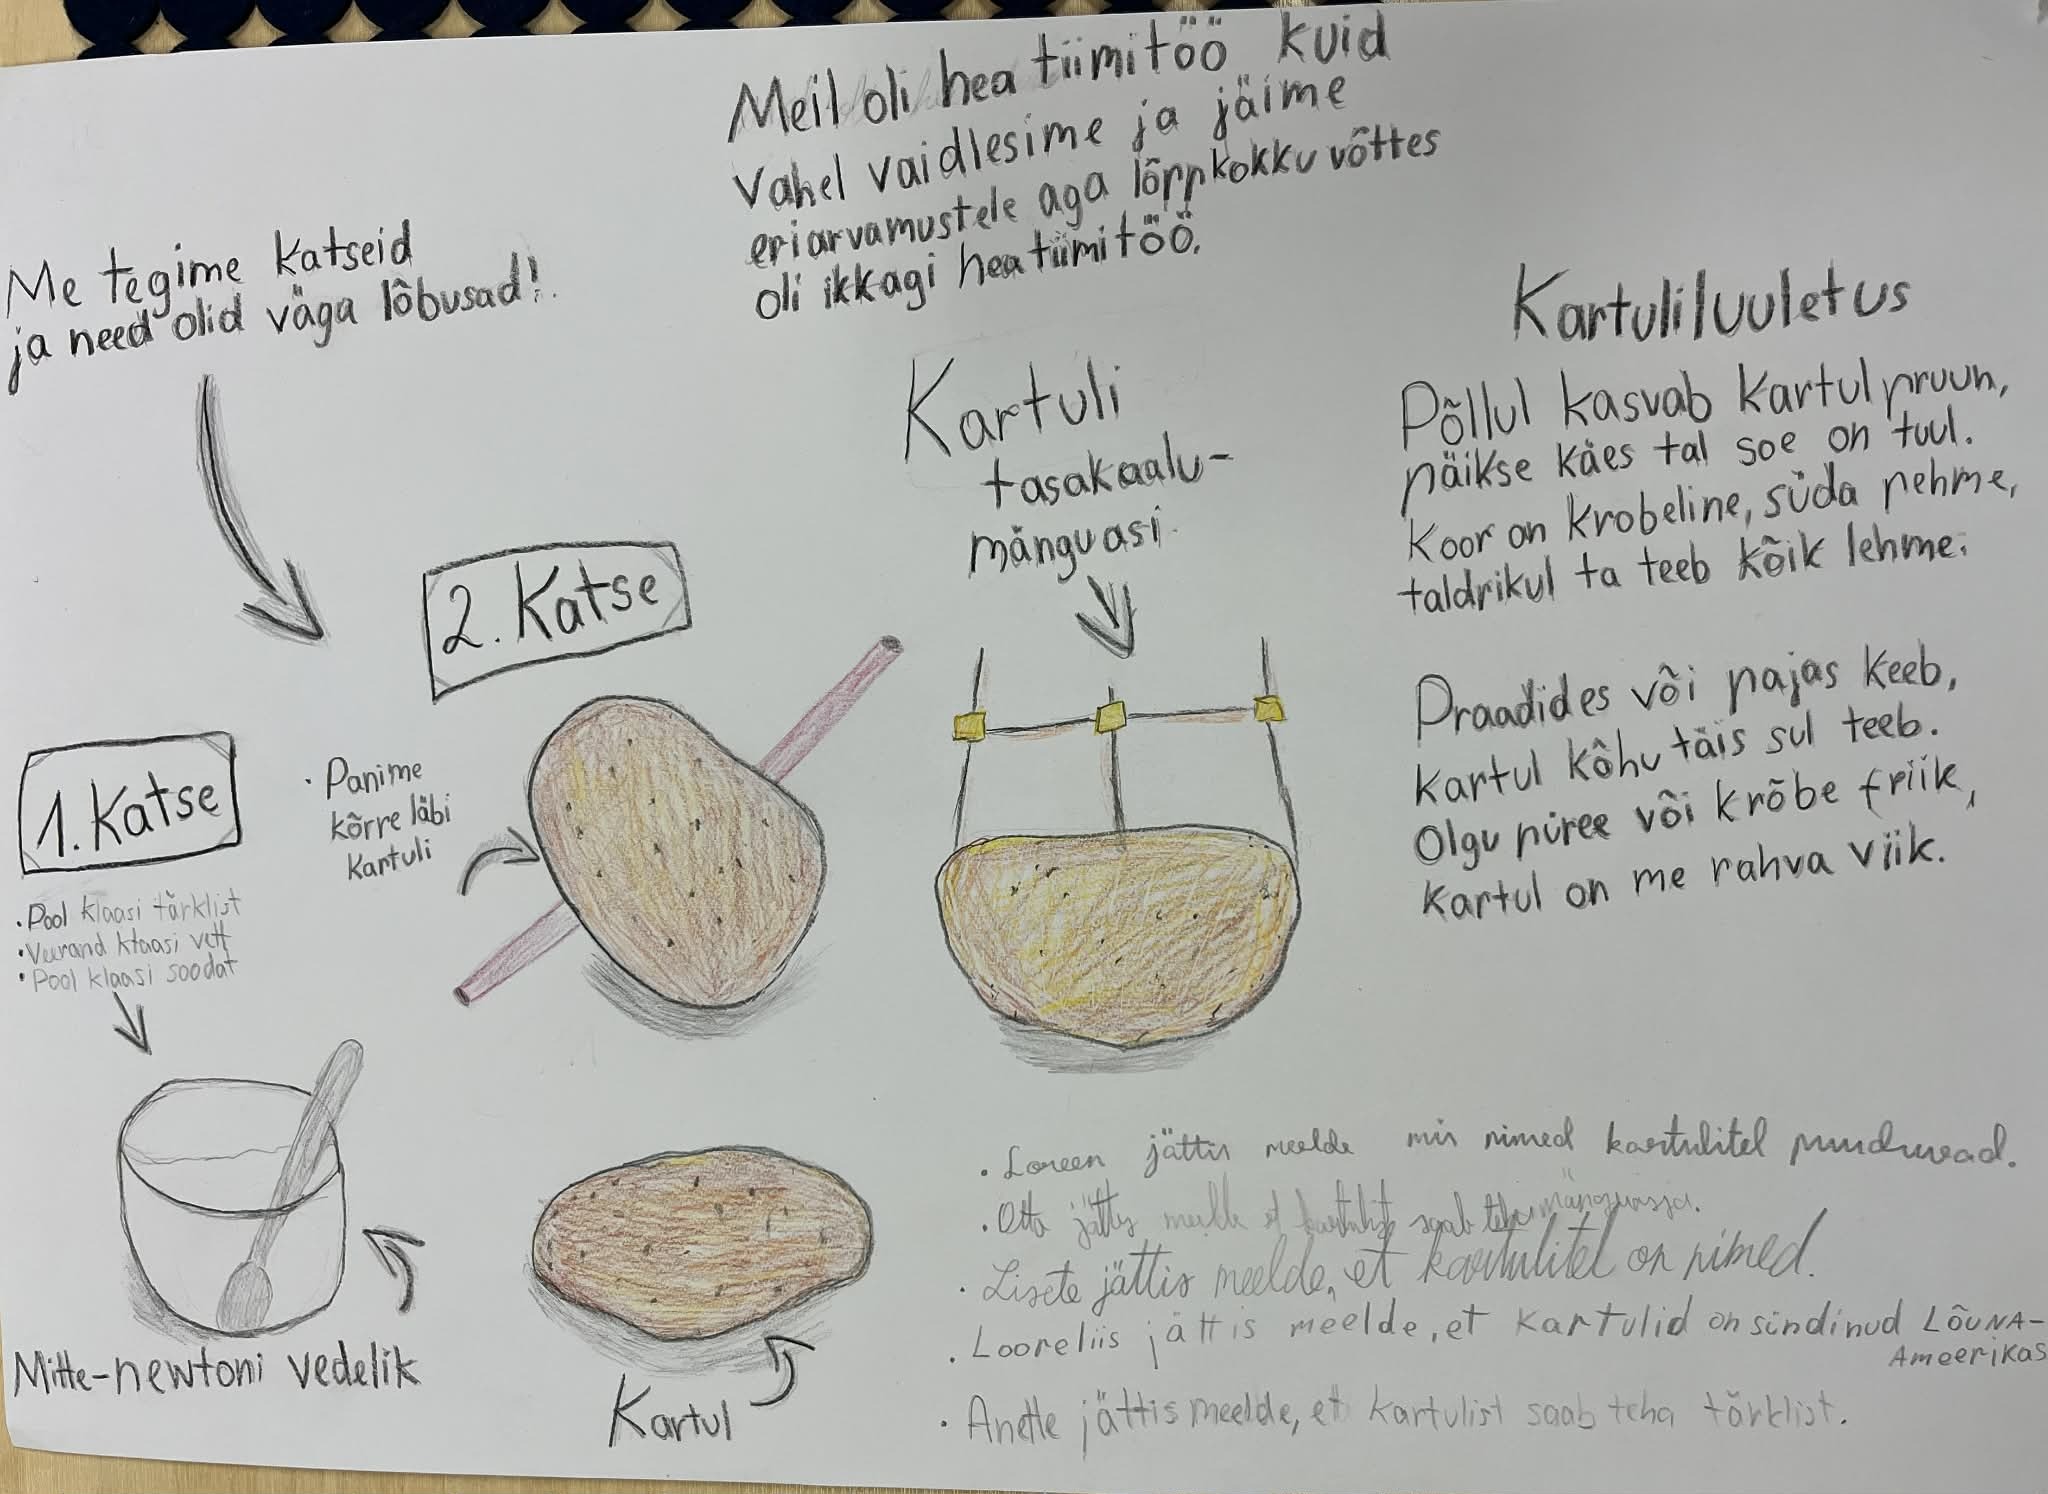 Meil oli hea tiimitöö kuid
vahel vaidlesime ja jäime
eriarvamustele aga lõppkokkuvõttes
oli ikkagi hea tiimitöö.
Me tegime katseid
ja need olid väga lõbusad!
1. Katse
• Pool klaasi tärklist
• Veerand klaasi vett
• Pool klaasi soodat
Mitte-newtoni vedelik
2. Katse
• Panime
kõrre läbi
kartuli
Kartul
Kartuli
tasakaalu-
mänguasi
Kartuliluuletus
Põllul kasvab kartul pruun,
päikse käes tal soe on tuul.
Koor on krobeline, süda pehme,
taldrikul ta teeb kõik lehme.
Praadides või pajas keeb,
kartul kõhu täis sul teeb.
Olgu püree või krõbe friik,
Kartul on me rahva viik.
• Loreen jättis meelde mis nimed kartulitel
• Otto jättis meelde et kartulist saab teha mänguasja.
• Lisete jättis meelde, et kartulitel on nimed.
• Looreliis jättis meelde, et kartulid on sündinud LÕUNA-
AMEERIKAS
• Anette jättis meelde, et kartulist saab teha tärklist.